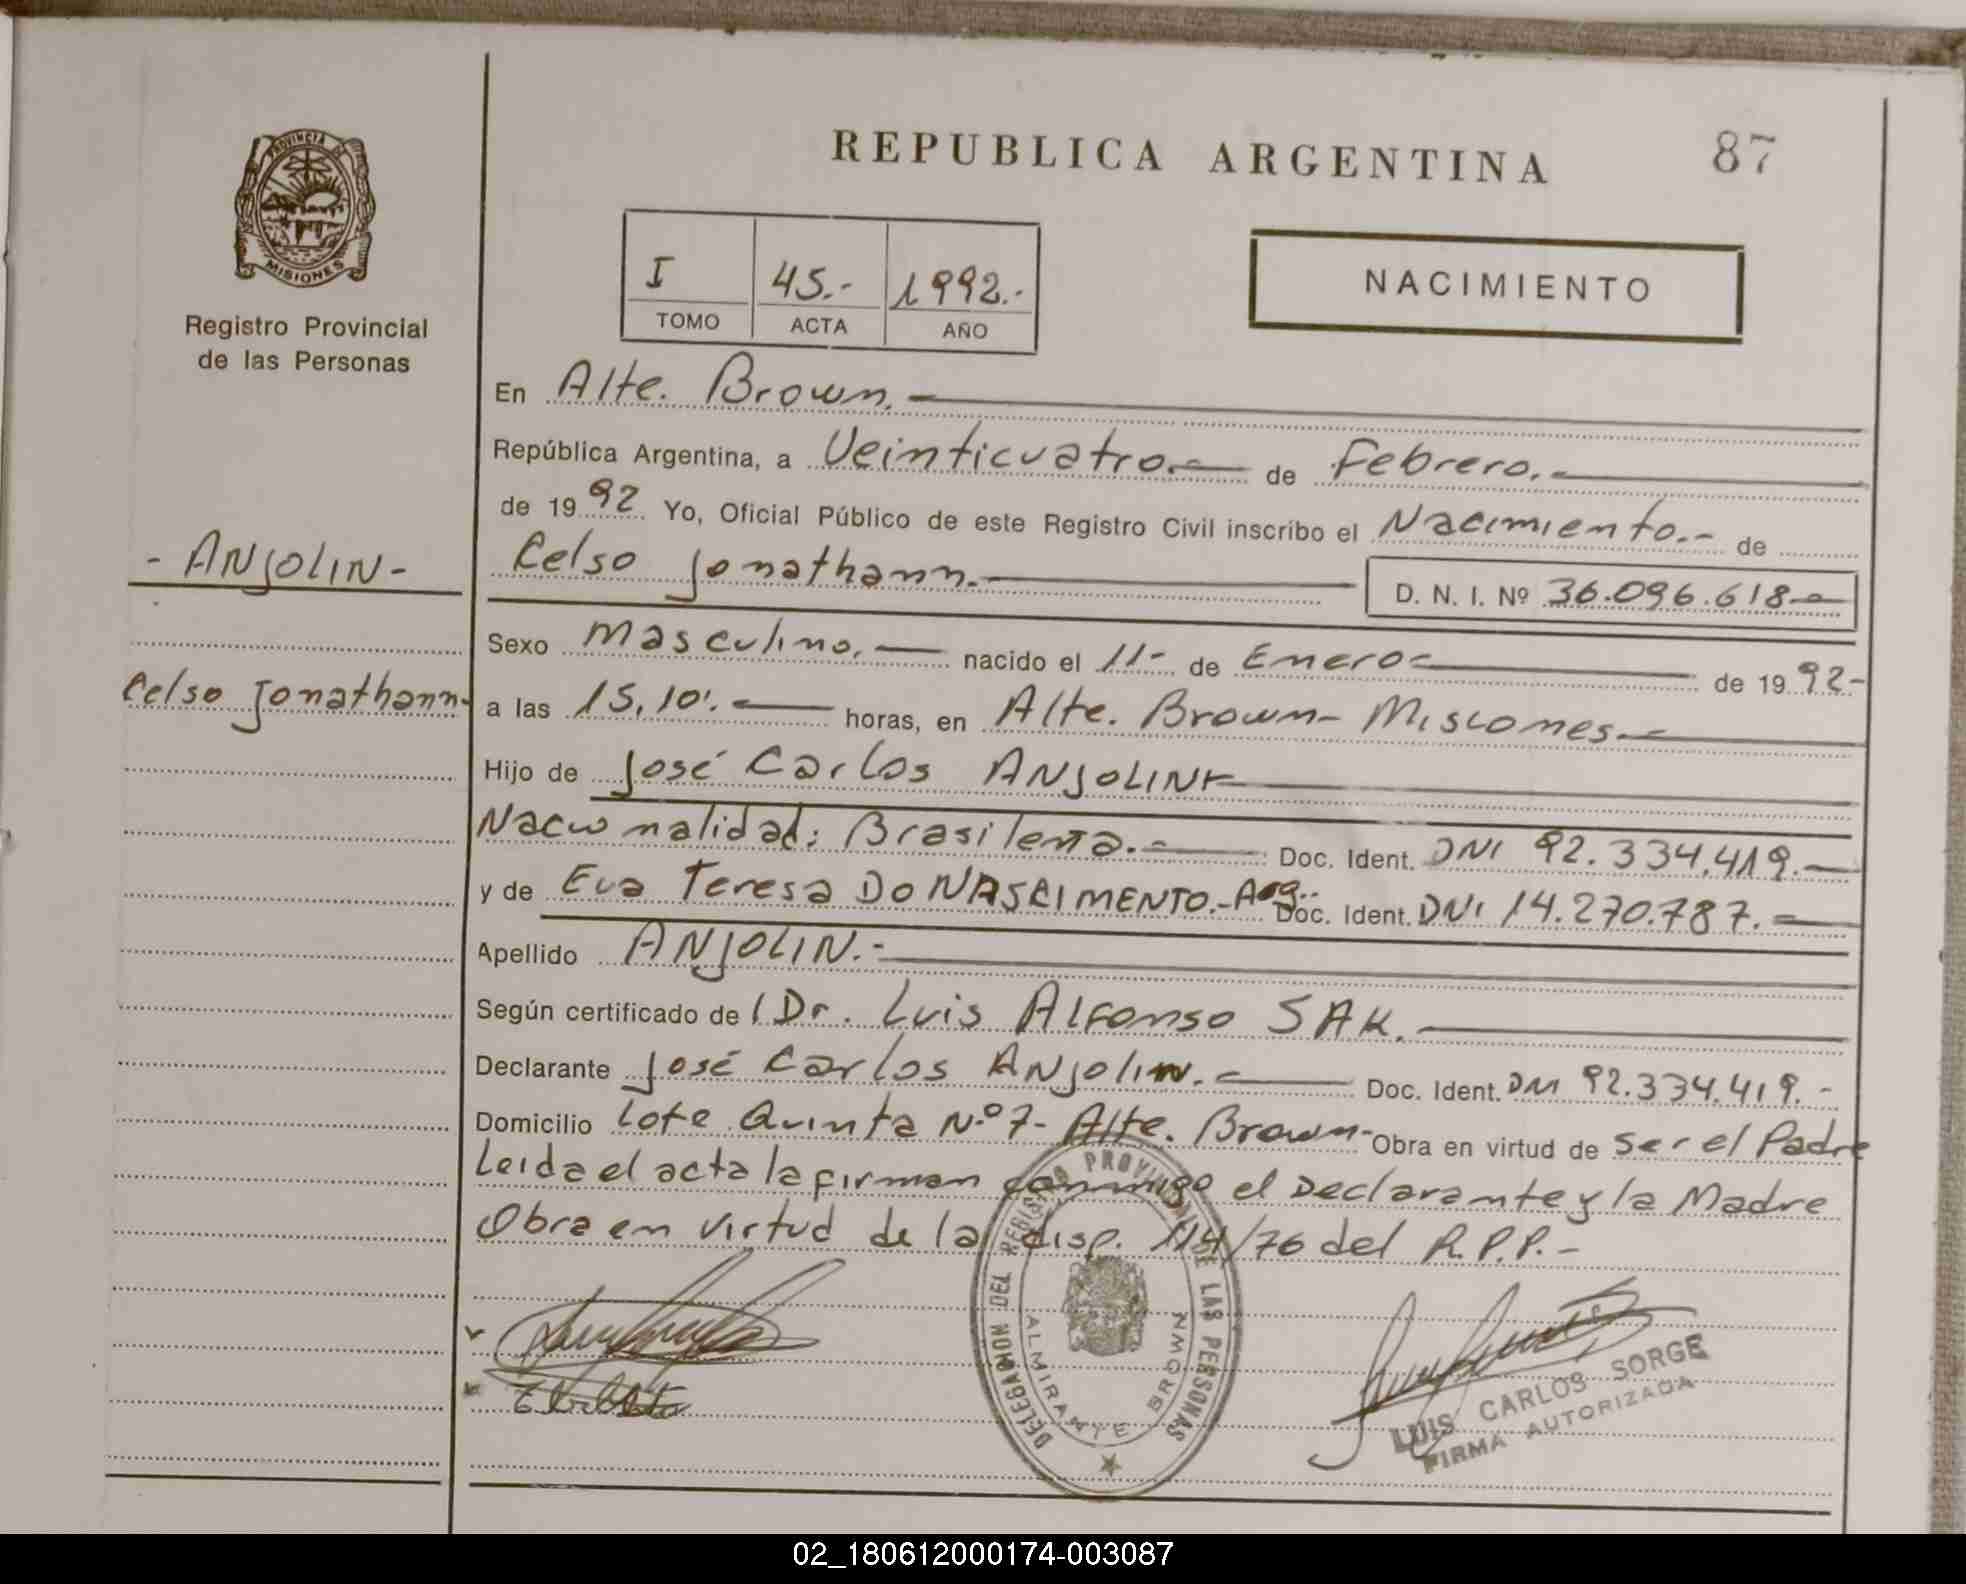 REPUBLICA ARGENTINA
87
PROVINCIA DE
MISIONES
Registro Provincial
de las Personas
I 45.- 1992.-
TOMO ACTA AÑO
NACIMIENTO
En Alte. Brown.
República Argentina, a Veinticuatro.- de Febrero.-
de 1992. Yo, Oficial Público de este Registro Civil inscribo el Nacimiento.- de
- ANJOLIN -
Celso Jonathann.-
D. N. I. Nº 36.096.618-
Celso Jonathann-
Sexo Masculino.- nacido el 11- de Enero- de 1992-
a las 15,10'.- horas, en Alte. Brown- Misiones.-
Hijo de José Carlos ANJOLIN
Nacionalidad: Brasileña.- Doc. Ident. DNI 92.334.419.-
y de Eva Teresa DO NASCIMENTO.-Arg.. Doc. Ident. DNI 14.270.787.-
Apellido ANJOLIN.-
Según certificado de Dr. Luis Alfonso SAK.
Declarante José Carlos ANJolin.- Doc. Ident. DNI 92.334.419.-
Domicilio Lote Quinta N.º 7- Alte. Brown- Obra en virtud de ser el Padre
Leida el acta la firman conmigo el Declarante y la Madre
Obra en virtud de la disp. 114/76 del R.P.P.-
DELEGACION DEL REGISTRO PROVINCIAL DE LAS PERSONAS
ALMIRANTE BROWN
LUIS CARLOS SORGE
FIRMA AUTORIZADA
02_180612000174-003087